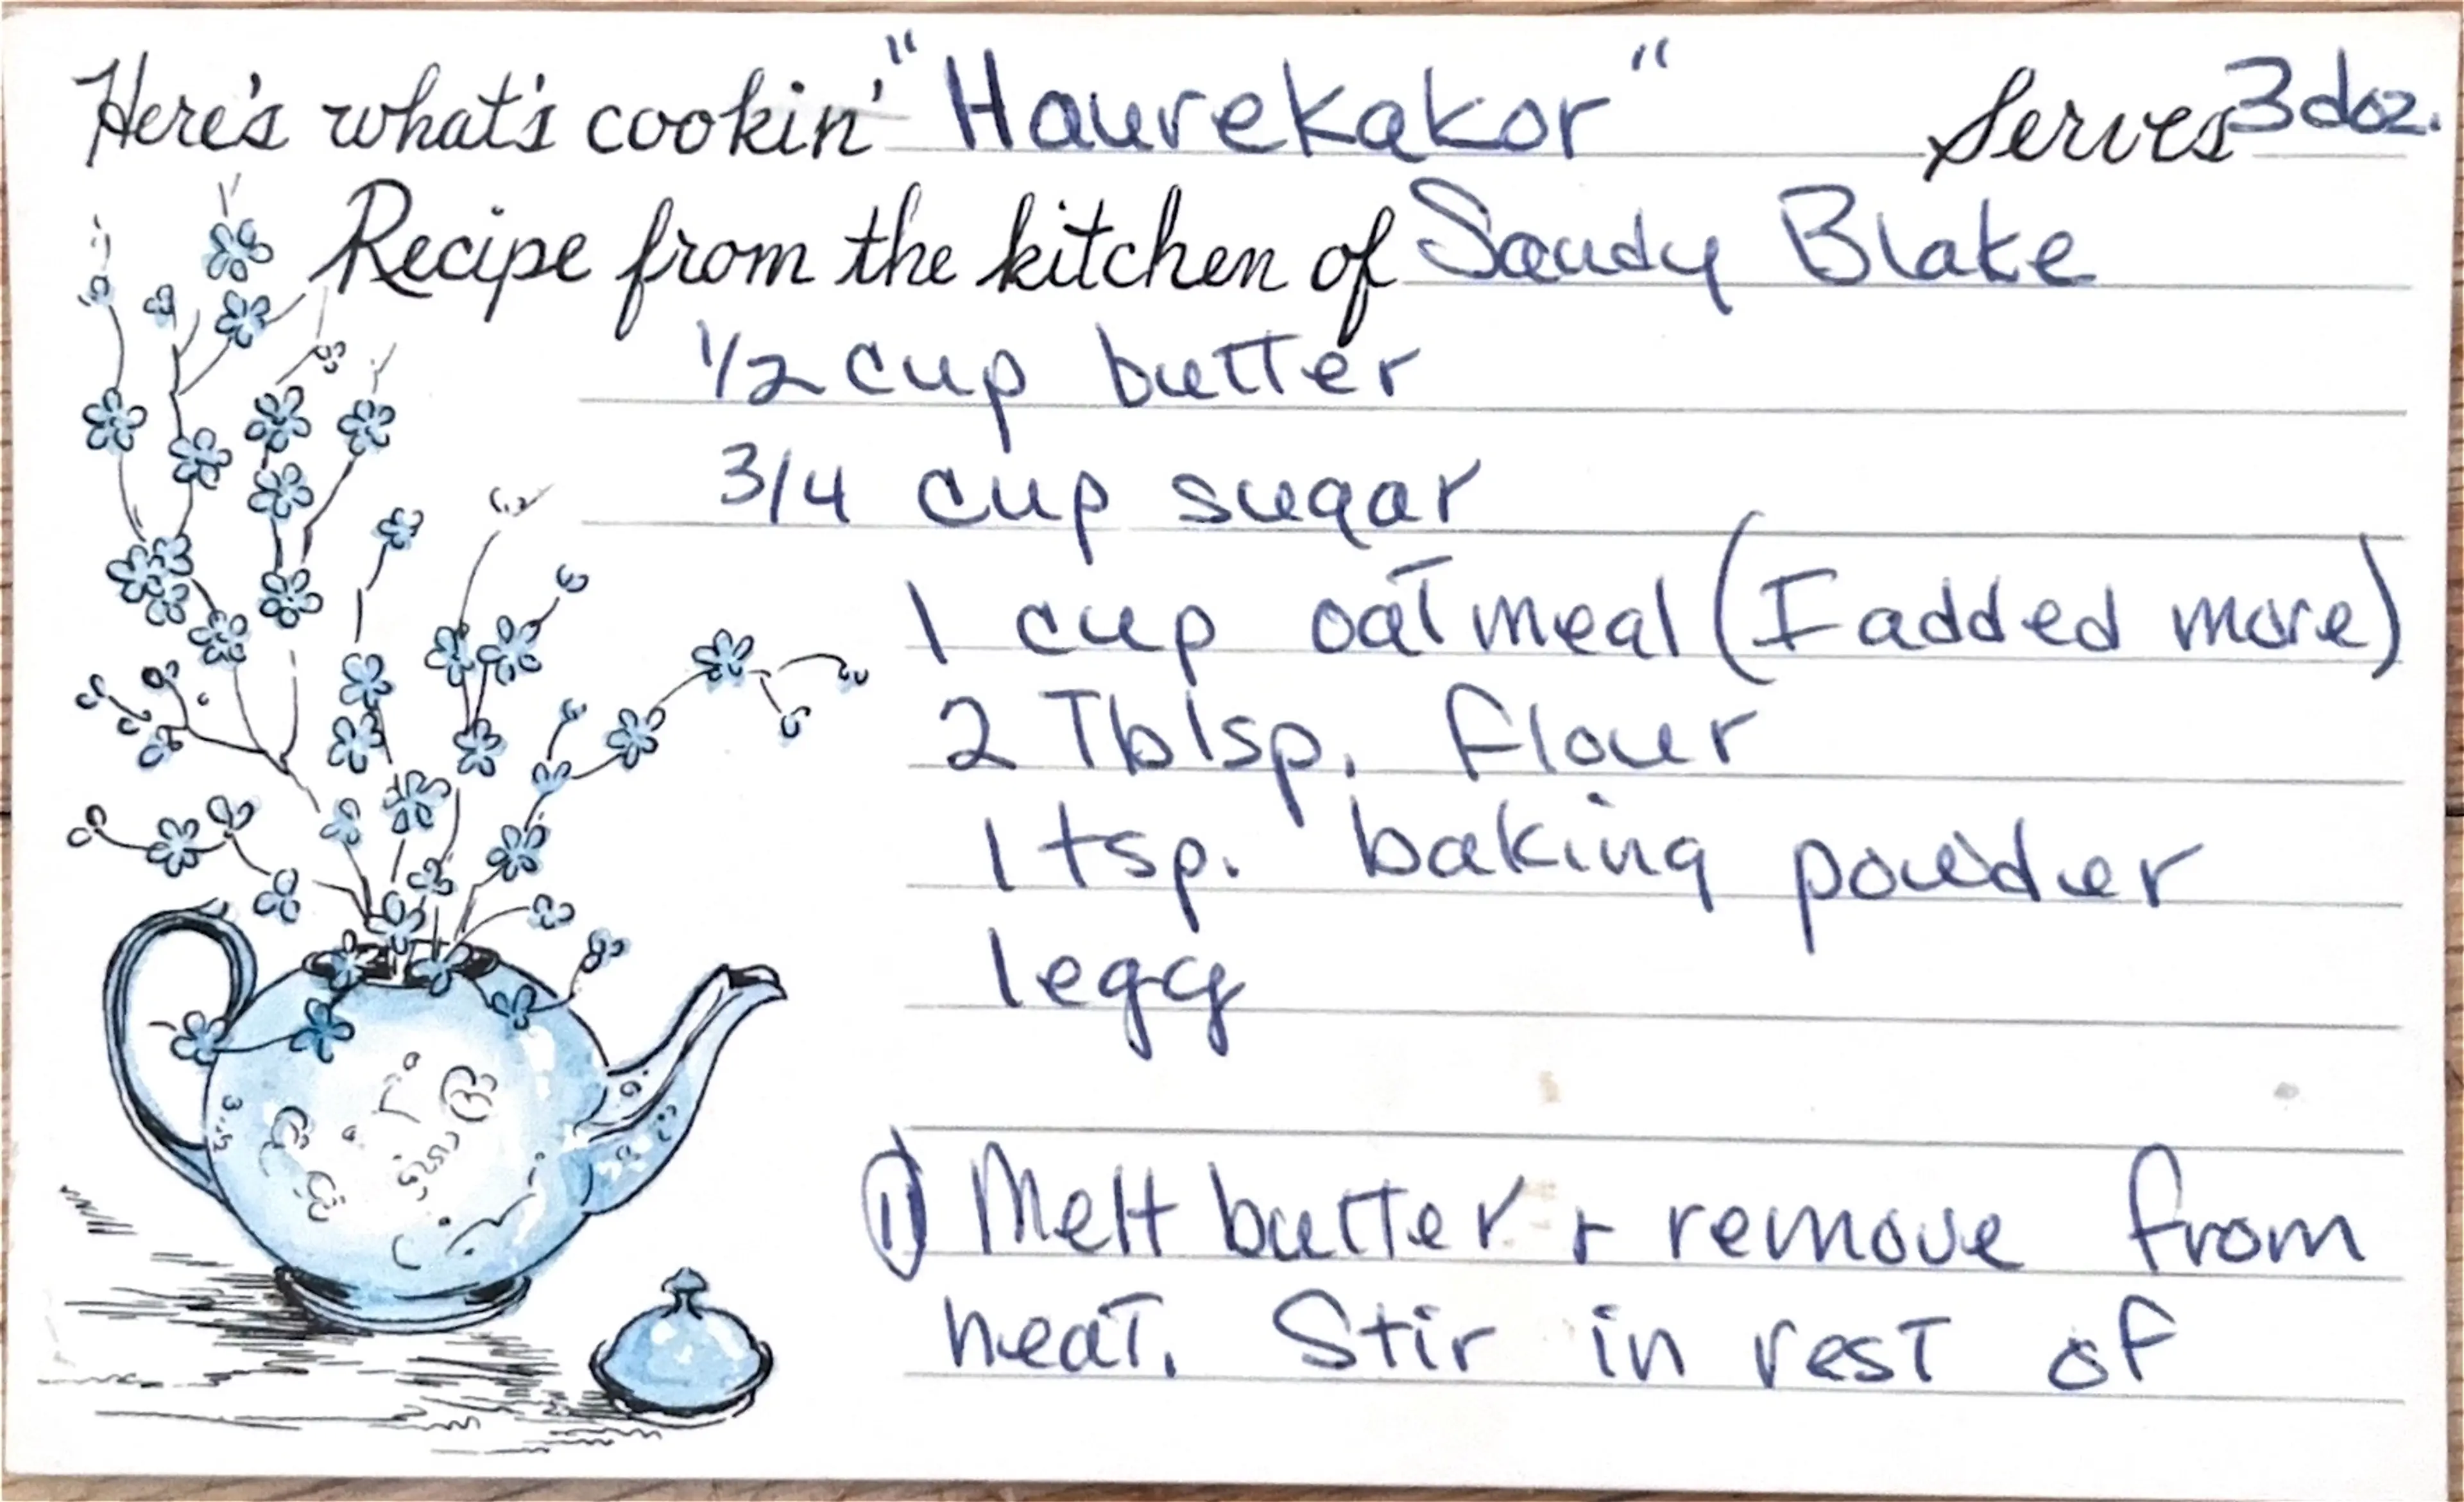 Here's what's cookin' "Haurekakor" Serves 3 doz.
Recipe from the kitchen of Sandy Blake
1/2 cup butter
3/4 cup sugar
1 cup oatmeal (I added more)
2 Tblsp. flour
1 tsp. baking powder
1 egg
1) Melt butter + remove from
heat. Stir in rest of